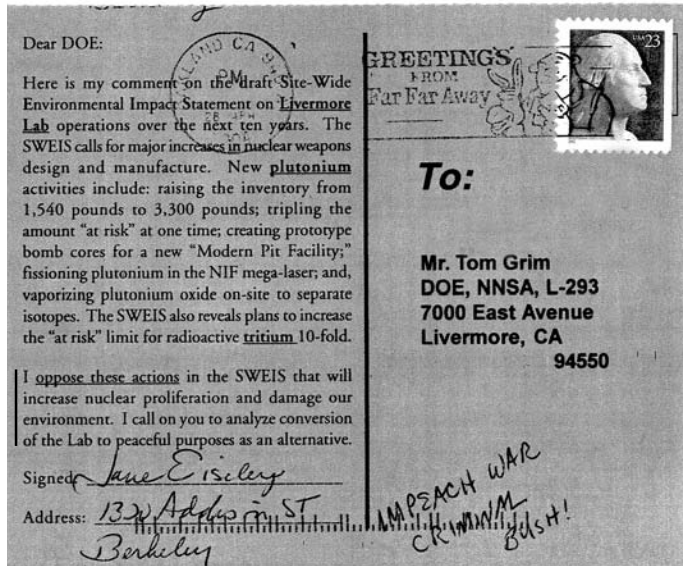 Dear DOE:
Here is my comment on the draft Site-Wide
Environmental Impact Statement on Livermore
Lab operations over the next ten years. The
SWEIS calls for major increases in nuclear weapons
design and manufacture. New plutonium
activities include: raising the inventory from
1,540 pounds to 3,300 pounds; tripling the
amount "at risk" at one time; creating prototype
bomb cores for a new "Modern Pit Facility;"
fissioning plutonium in the NIF mega-laser; and,
vaporizing plutonium oxide on-site to separate
isotopes. The SWEIS also reveals plans to increase
the "at risk" limit for radioactive tritium 10-fold.
I oppose these actions in the SWEIS that will
increase nuclear proliferation and damage our
environment. I call on you to analyze conversion
of the Lab to peaceful purposes as an alternative.
Signed: Jane Eiseley
Address: Addison ST
Berkeley
CA
PM
GREETINGS
FROM
Far Far Away
USA 23
To:
Mr. Tom Grim
DOE, NNSA, L-293
7000 East Avenue
Livermore, CA
94550
IMPEACH WAR
CRIMINAL
BUSH!